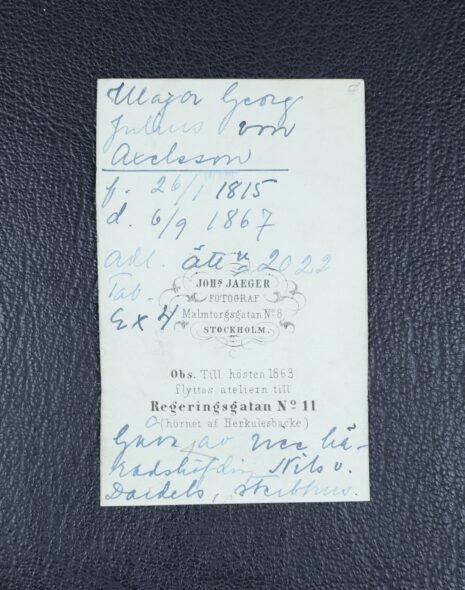 Major Georg
Julius von
Axelsson
f. 26/1 1815
d. 6/9 1867
adl. ätt № 2022
Tab.
Ex 4
JOHS JAEGER
FOTOGRAF
Malmtorgsgatan No 6
STOCKHOLM.
Obs. Till hösten 1863
flyttas ateliern till
Regeringsgatan No 11
(hörnet af Herkulesbacke)
Gåva av vice hä-
radshöfding Nils v.
Dardels,